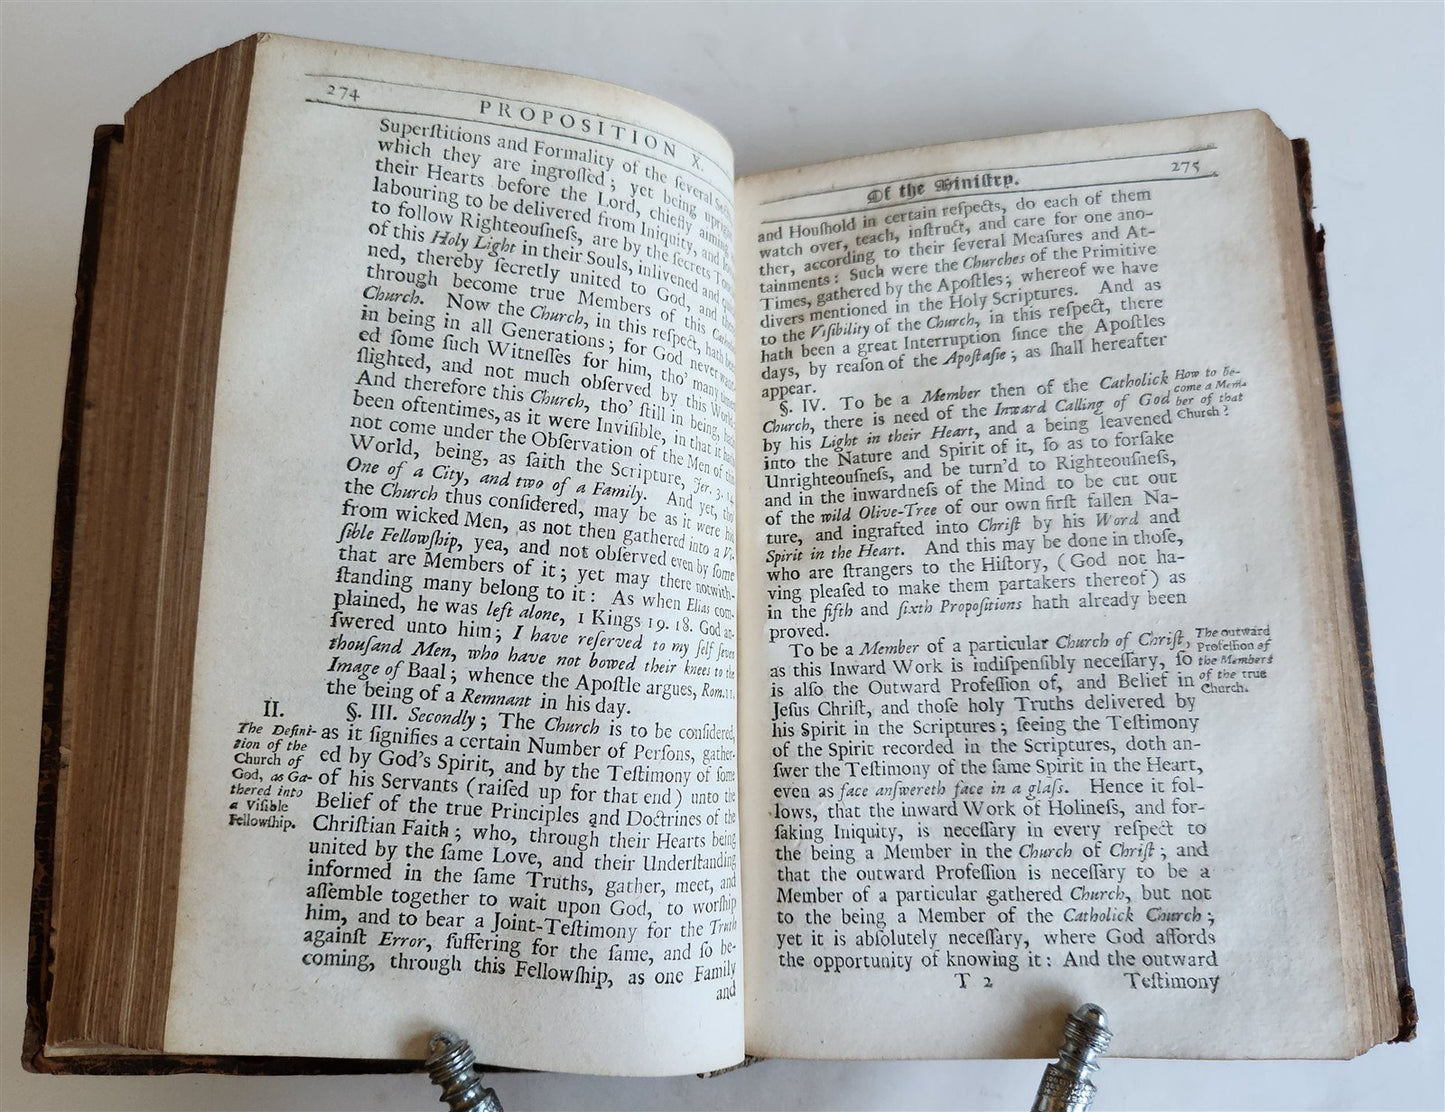 274
PROPOSITION X.
Superſtitions and Formality of the ſeveral
which they are ingroſſed; yet being
their Hearts before the Lord, chiefly aiming
labouring to be delivered from Iniquity, and
to follow Righteouſneſs, are by the ſecrets
of this Holy Light in their Souls, inlivened and
ned, thereby ſecretly united to God, and
through become true Members of this
Church. Now the Church, in this reſpect, hath
in being in all Generations; for God never
ed ſome ſuch Witneſſes for him, tho' many
ſlighted, and not much obſerved by this
And therefore this Church, tho' ſtill in being,
been oftentimes, as it were Inviſible, in that it
not come under the Obſervation of the Men of
World, being, as ſaith the Scripture, Jer. 3. 14.
One of a City, and two of a Family. And yet,
the Church thus conſidered, may be as it were
from wicked Men, as not then gathered into a Vi-
ſible Fellowſhip, yea, and not obſerved even by ſome
that are Members of it; yet may there notwith-
ſtanding many belong to it: As when Elias com-
plained, he was left alone, 1 Kings 19. 18. God an-
ſwered unto him; I have reſerved to my ſelf ſeven
thouſand Men, who have not bowed their knees to the
Image of Baal; whence the Apoſtle argues, Rom. 11.
the being of a Remnant in his day.
II.
§. III. Secondly; The Church is to be conſidered,
as it ſignifies a certain Number of Perſons, gather-
ed by God's Spirit, and by the Teſtimony of ſome
of his Servants (raiſed up for that end) unto the
Belief of the true Principles and Doctrines of the
Chriſtian Faith; who, through their Hearts being
united by the ſame Love, and their Underſtanding
informed in the ſame Truths, gather, meet, and
aſſemble together to wait upon God, to worſhip
him, and to bear a Joint-Teſtimony for the Truth
againſt Error, ſuffering for the ſame, and ſo be-
coming, through this Fellowſhip, as one Family
and
The Defini-
tion of the
Church of
God, as Ga-
thered into
a Viſible
Fellowſhip.
Of the Miniſtry.
275
and Houſhold in certain reſpects, do each of them
watch over, teach, inſtruct, and care for one ano-
ther, according to their ſeveral Meaſures and At-
tainments: Such were the Churches of the Primitive
Times, gathered by the Apoſtles; whereof we have
divers mentioned in the Holy Scriptures. And as
to the Viſibility of the Church, in this reſpect, there
hath been a great Interruption ſince the Apoſtles
days, by reaſon of the Apoſtaſie; as ſhall hereafter
appear.
§. IV. To be a Member then of the Catholick
Church, there is need of the Inward Calling of God
by his Light in their Heart, and a being leavened
into the Nature and Spirit of it, ſo as to forſake
Unrighteouſneſs, and be turn'd to Righteouſneſs,
and in the inwardneſs of the Mind to be cut out
of the wild Olive-Tree of our own firſt fallen Na-
ture, and ingrafted into Chriſt by his Word and
Spirit in the Heart. And this may be done in thoſe,
who are ſtrangers to the Hiſtory, (God not ha-
ving pleaſed to make them partakers thereof) as
in the fifth and ſixth Propoſitions hath already been
proved.
To be a Member of a particular Church of Chriſt,
as this Inward Work is indiſpenſibly neceſſary, ſo
is alſo the Outward Profeſſion of, and Belief in
Jeſus Chriſt, and thoſe holy Truths delivered by
his Spirit in the Scriptures; ſeeing the Teſtimony
of the Spirit recorded in the Scriptures, doth an-
ſwer the Teſtimony of the ſame Spirit in the Heart,
even as face anſwereth face in a glaſs. Hence it fol-
lows, that the inward Work of Holineſs, and for-
ſaking Iniquity, is neceſſary in every reſpect to
the being a Member in the Church of Chriſt; and
that the outward Profeſſion is neceſſary to be a
Member of a particular gathered Church, but not
to the being a Member of the Catholick Church;
yet it is abſolutely neceſſary, where God affords
the opportunity of knowing it: And the outward
T 2
Teſtimony
How to be-
come a Mem-
ber of that
Church?
The outward
Profeſſion of
the Members
of the true
Church.